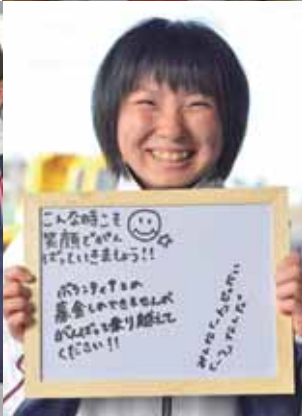 こんな時こそ
笑顔でがん
ばっていきましょう!!
ボランティアとか
募金しかできませんが
がんばって乗り越えて
ください!!